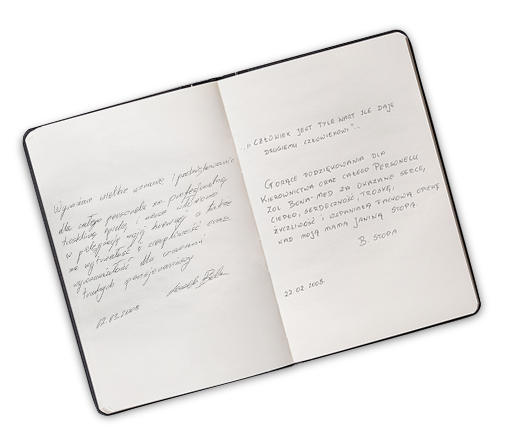 Wyrażam wielkie uznanie i podziękowanie
dla całego personelu za profesjonalną
troskliwą opiekę, i
w pielęgnacji mojej a także
za wytrwałość i cierpliwość oraz
wyrozumiałość dla
trudnych
07.03.2008
„CZŁOWIEK JEST TYLE WART ILE DAJE
DRUGIEMU CZŁOWIEKOWI"...
GORĄCE PODZIĘKOWANIA DLA
KIEROWNICTWA ORAZ CAŁEGO PERSONELU
ZOL BONA-MED ZA OKAZANE SERCE,
CIEPŁO, SERDECZNOŚĆ, TROSKĘ,
ŻYCZLIWOŚĆ I WSPANIAŁĄ FACHOWĄ OPIEKĘ
NAD MOJĄ MAMĄ JANINĄ STOPA.
B. STOPA
22.02.2008